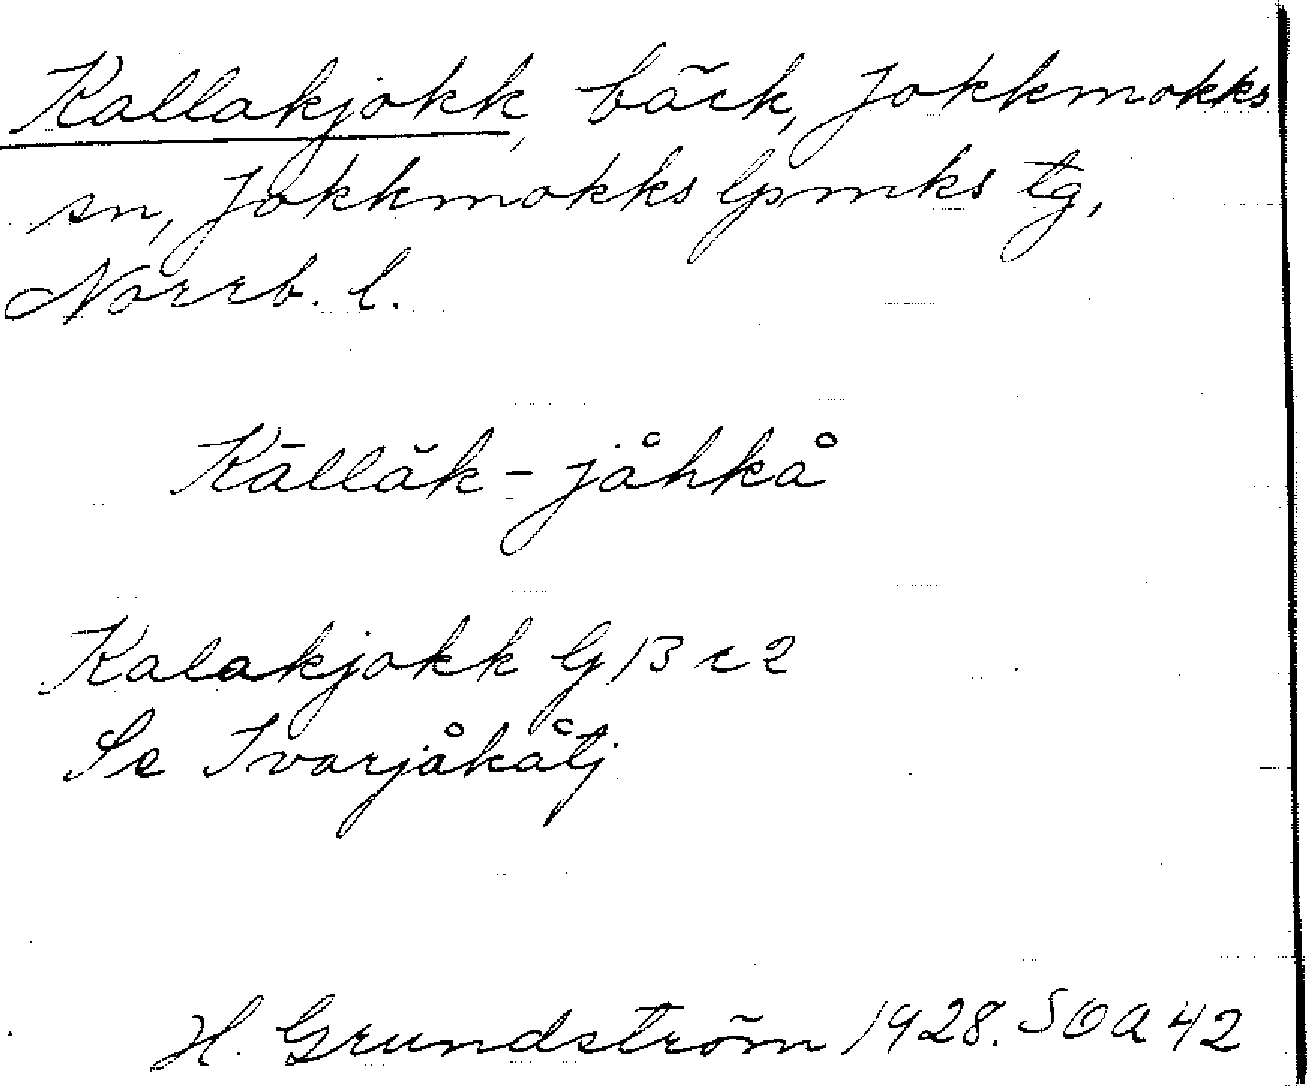 Kallakjokk, bäck, Jokkmokks
sn, Jokkmokks lpmks tg,
Norrb. l.
Kāllăk-jåhkå
Kalakjokk G 13 c 2
Se Tvarjåkåtj
H. Grundström 1928. SOA 42